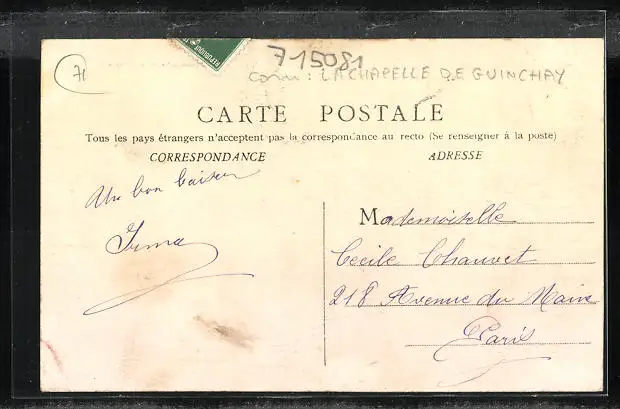 71
715081
REPUBLIQUE
Com : LA CHAPELLE DE GUINCHAY
CARTE POSTALE
Tous les pays étrangers n'acceptent pas la correspondance au recto (Se renseigner à la poste)
CORRESPONDANCE
ADRESSE
Un bon baiser
Irma
Mademoiselle
Cecile Chauvet
218 Avenue du Maine
Paris